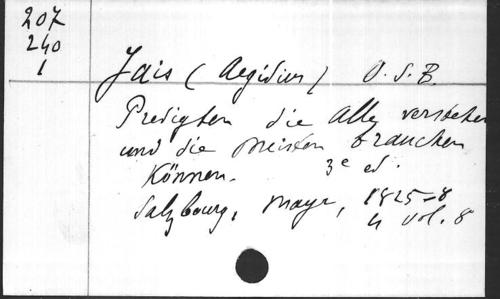 207
240
1
Jais (Aegidius) O.S.B.
Predigten die Alle verstehen
und die Meisten brauchen
Können. 3e ed.
Salzbourg, Mayr, 1825-8
4 vol. 8